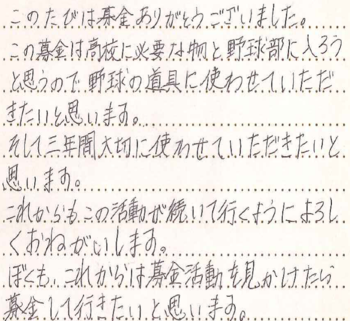 このたびは募金ありがとうございました。
この募金は高校に必要な物と、野球部に入ろう
と思うので、野球の道具に使わせていただ
きたいと思います。
そして三年間大切に使わせていただきたいと
思います。
これからもこの活動が続いて行くようによろし
くおねがいします。
ぼくも、これからは募金活動を見かけたら
募金して行きたいと思います。